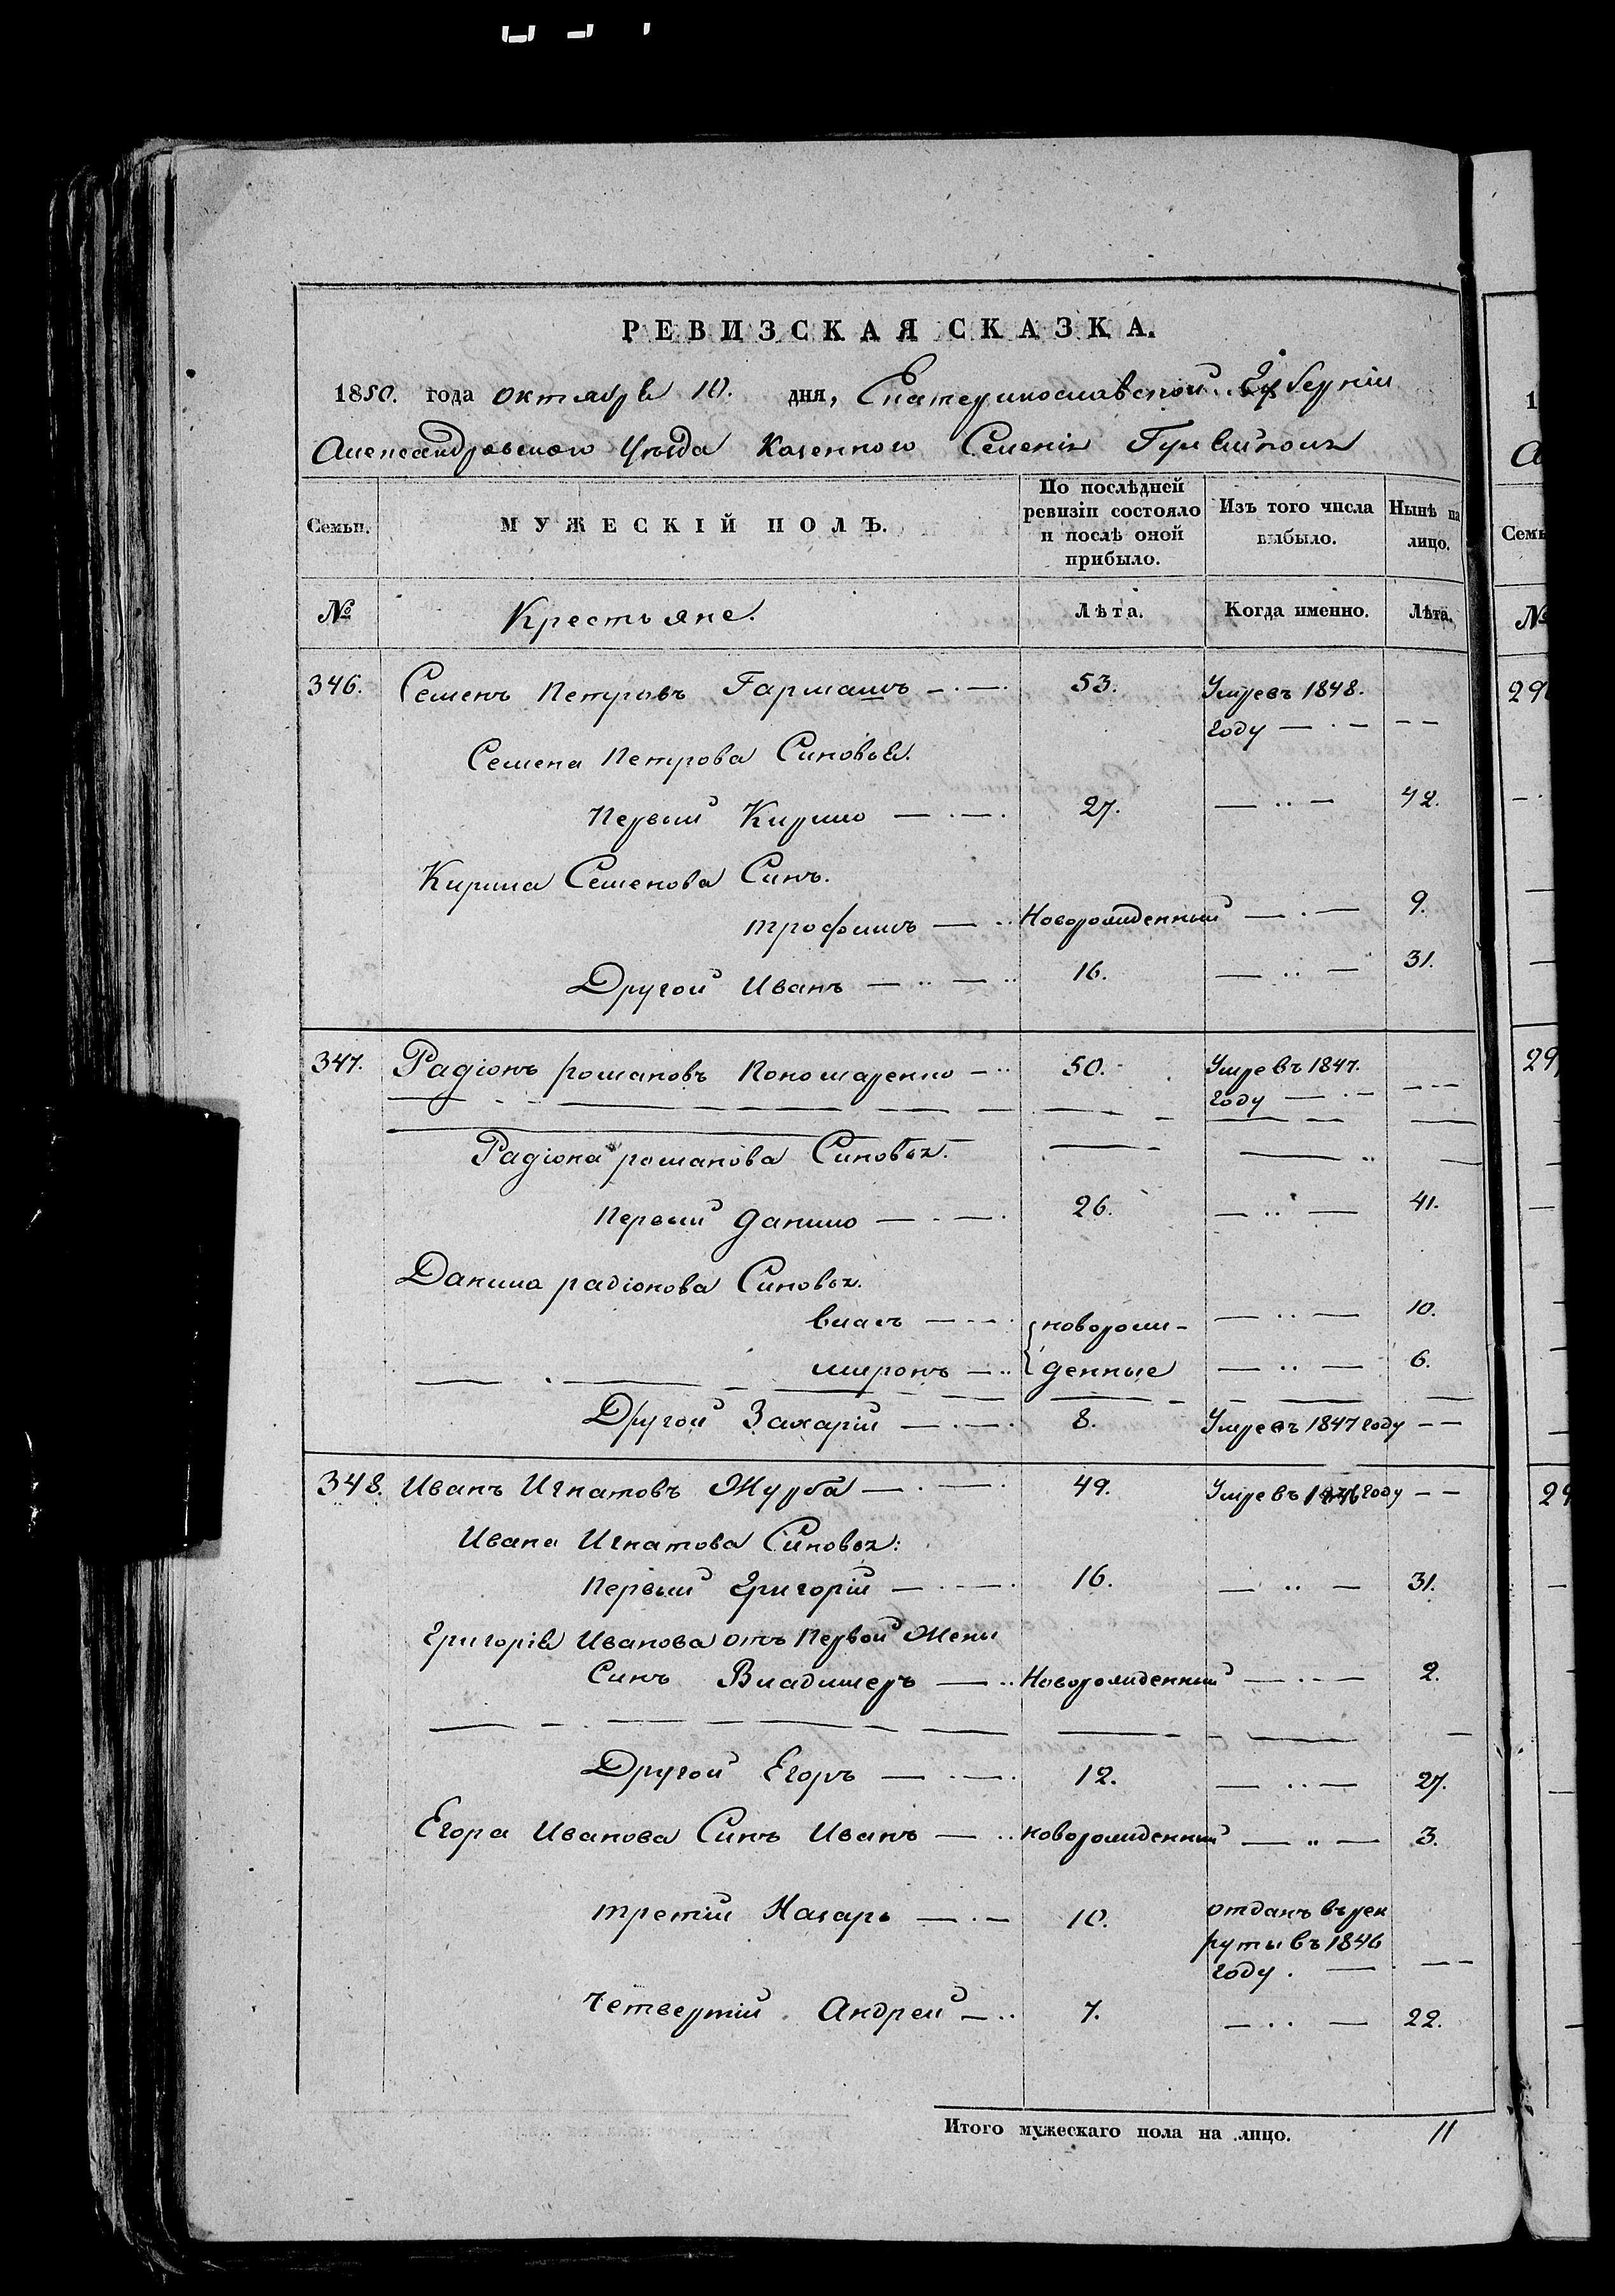 РЕВИЗСКАЯ СКАЗКА.
1850. года октября 10. дня, Екатеринославской Губерніи
Александровского Уезда Казенного Селенія Гуляйполя
Семьи. МУЖЕСКІЙ ПОЛЪ. По послѣдней ревизіи состояло и послѣ оной прибыло. Изъ того числа выбыло. Нынѣ на лицо.
№ Крестьяне. Лѣта. Когда именно. Лѣта.
346. Семенъ Петровъ Гармашъ 53. Умре въ 1848.
году
Семена Петрова Синовья.
Первый Кирило 27. 42.
Кирила Семенова Синъ.
трофимъ Новорожденный 9.
Другой Иванъ 16. 31.
347. Радіонъ романовъ Пономаренко 50. Умре въ 1847.
году
Радіона романова Синовья.
Первый Данило 26. 41.
Данила радіонова Синовья.
власъ новорож- 10.
миронъ денные 6.
Другой Захарій 8. Умре въ 1847 году
348. Иванъ Игнатовъ Журба 49. Умре въ 1846 году
Ивана Игнатова Синовья:
Первый Григорій 16. 31.
Григорія Иванова отъ Первой Жени
Синъ Владимеръ Новорожденный 2.
Другой Егоръ 12. 27.
Егора Иванова Синъ Иванъ новорожденный 3.
третій Назаръ 10. отданъ въ рек
руты въ 1846
году.
Четвертій Андрей 7. 22.
Итого мужескаго пола на лицо. 11
1
Семь
№
29
29
29